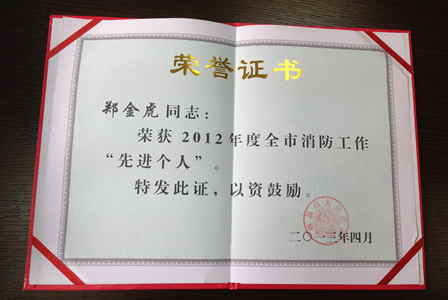 荣誉证书
郑金虎同志：
荣获2012年度全市消防工作
“先进个人”。
特发此证，以资鼓励。
二〇一三年四月